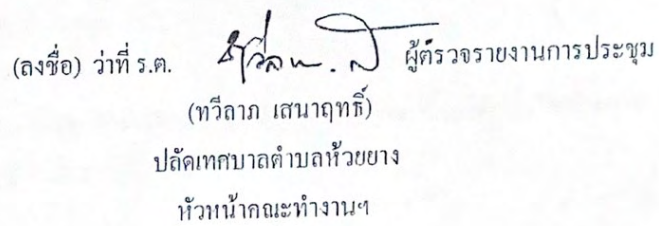 (ลงชื่อ) ว่าที่ ร.ต. ผู้ตรวจรายงานการประชุม
(ทวีลาภ เสนาฤทธิ์)
ปลัดเทศบาลตำบลห้วยยาง
หัวหน้าคณะทำงานฯ